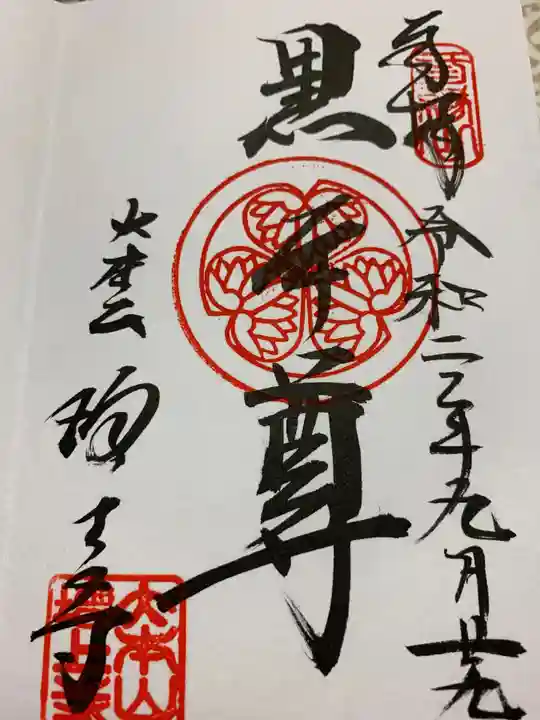 奉拝
令和二年九月廿九
黒本尊
大本山
増上寺
大本山
増上寺